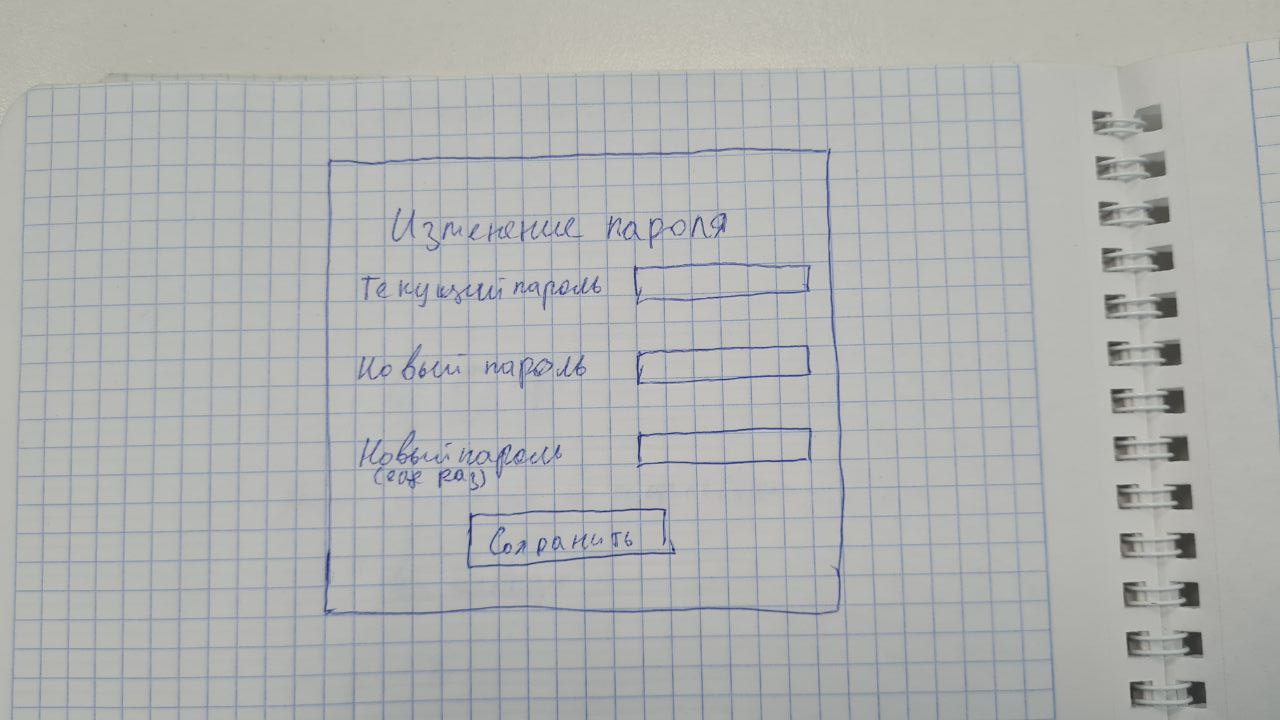 Изменение пароля
Текущий пароль
Новый пароль
Новый пароль
(еще раз)
Сохранить